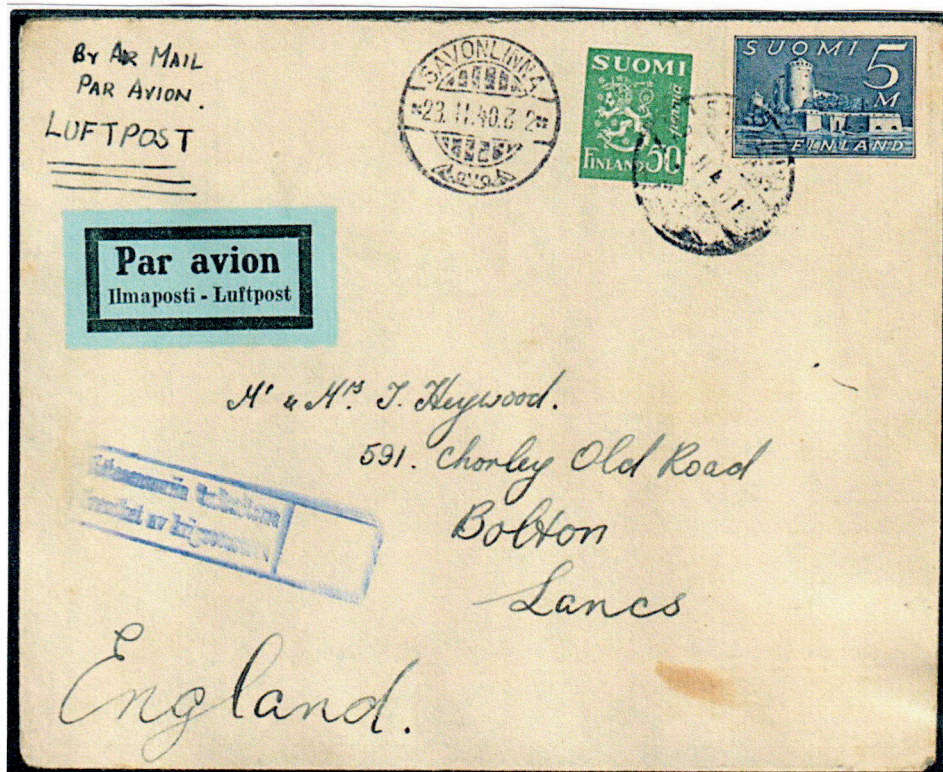 By Air Mail
Par Avion.
LUFTPOST
SAVONLINNA
23.11.40.
SUOMI
50 penniä
FINLAND
SUOMI 5
M
FINLAND
Par avion
Ilmaposti - Luftpost
Mr & Mrs J. Heywood.
591. Chorley Old Road
Bolton
Lancs
England.